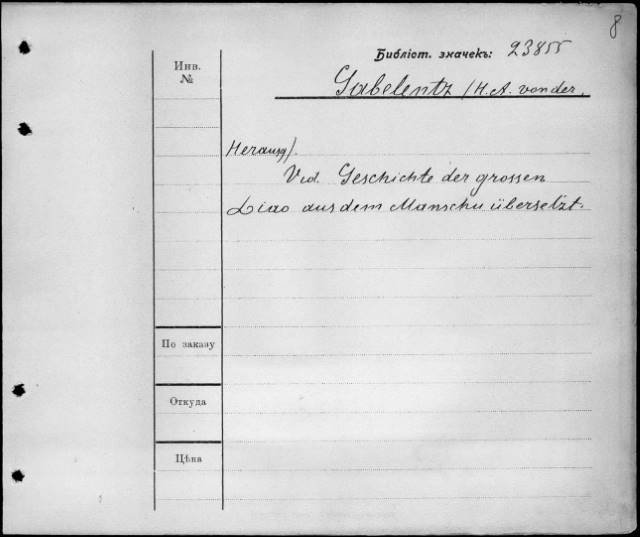 8
Библіот. значекъ: 23855
Инв.
№
Gabelentz /H. A. von der.
Herausg/.
Vid. Geschichte der grossen
Liao aus dem Manschu übersetzt.
По заказу
Откуда
Цѣна